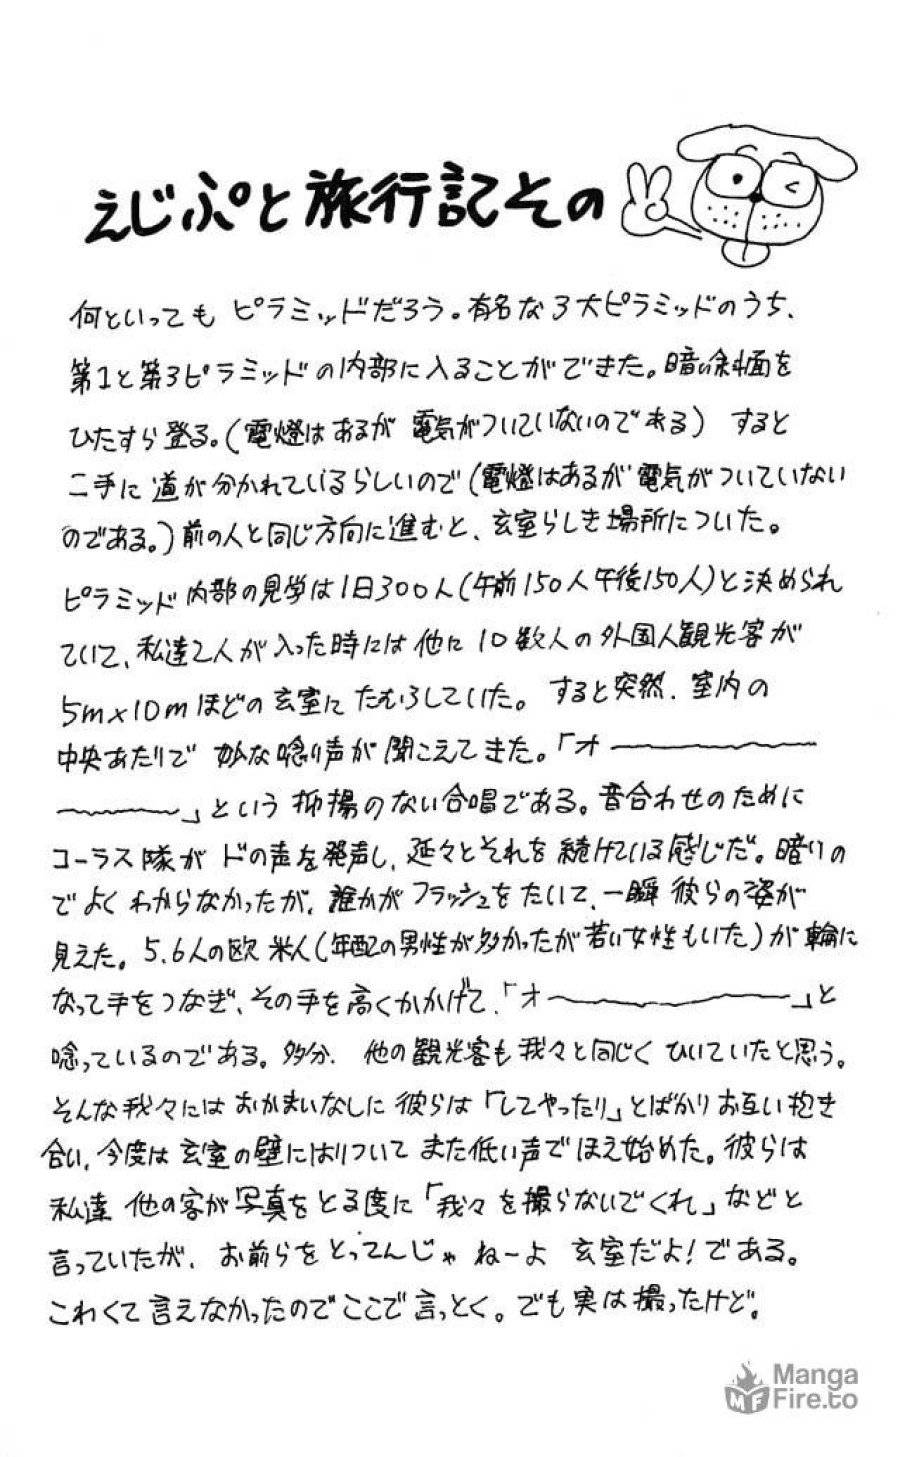 えじぷと旅行記その
何といっても ピラミッドだろう。有名な3大ピラミッドのうち、
第1と第3ピラミッドの内部に入ることができた。暗い斜面を
ひたすら登る。(電燈はあるが 電気がついていないのである) すると
二手に道が分かれているらしいので(電燈はあるが電気がついていない
のである。)前の人と同じ方向に進むと、玄室らしき場所についた。
ピラミッド内部の見学は1日300人(午前150人午後150人)と決められ
ていて、私達2人が入った時には他に10数人の外国人観光客が
5m×10mほどの玄室にたむろしていた。 すると突然、室内の
中央あたりで 妙な唸り声が聞こえてきた。「オ〜〜〜〜
〜〜〜〜」という抑揚のない合唱である。音合わせのために
コーラス隊がドの声を発声し、延々とそれを続けている感じだ。暗いの
でよくわからなかったが、誰かがフラッシュをたいて、一瞬彼らの姿が
見えた。5.6人の欧米人(年配の男性が多かったが若い女性もいた)が輪に
なって手をつなぎ、その手を高くかかげて、「オ〜〜〜〜」と
唸っているのである。多分、他の観光客も我々と同じくひいていたと思う。
そんな我々にはおかまいなしに彼らは「してやったり」とばかりお互い抱き
合い、今度は玄室の壁にはりついてまた低い声でほえ始めた。彼らは
私達 他の客が写真をとる度に「我々を撮らないでくれ」などと
言っていたが、お前らをとってんじゃねーよ 玄室だよ!である。
こわくて言えなかったのでここで言っとく。でも実は撮ったけど。
Manga
Fire.to
MF